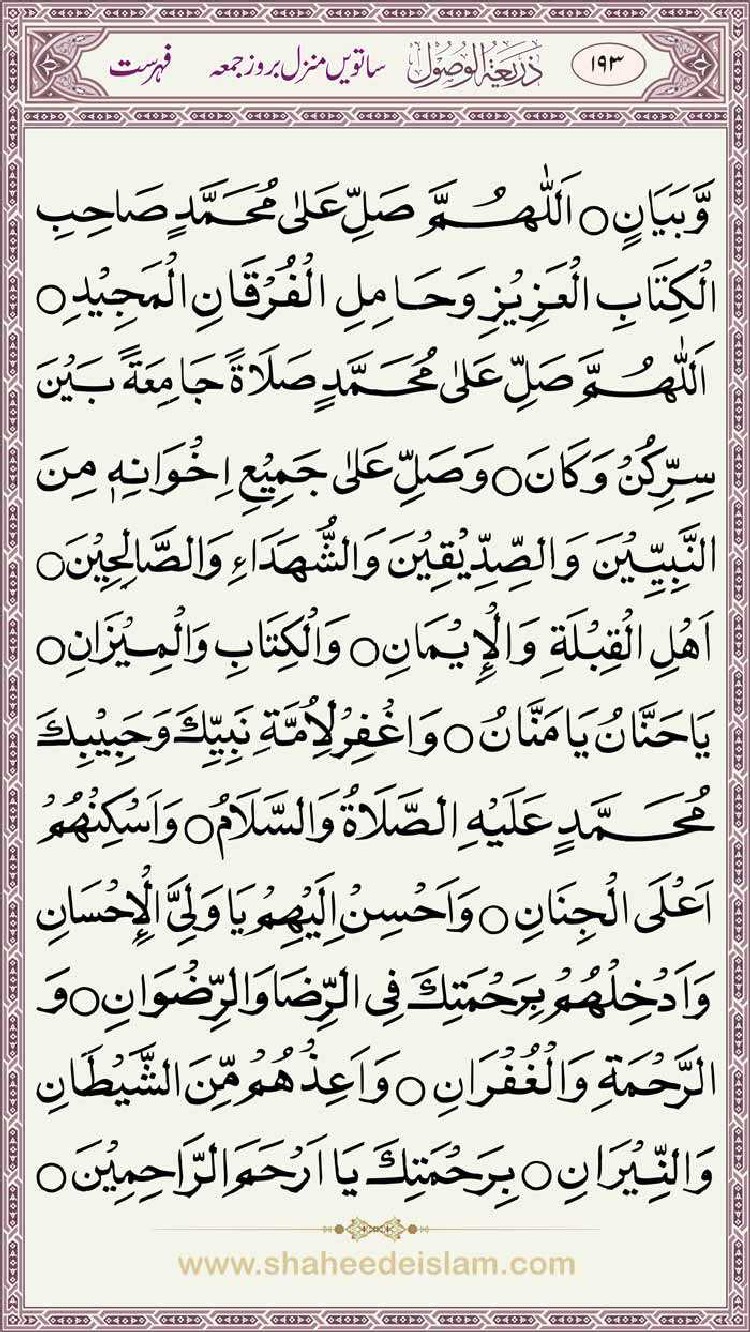 ۱۹۳ ذَرِيعَةُ الْوُصُوْلِ ساتویں منزل بروز جمعہ فہرست
وَّبَيَانٍ○ اَللّٰهُمَّ صَلِّ عَلٰى مُحَمَّدٍ صَاحِبِ
الْكِتَابِ الْعَزِيْزِ وَحَامِلِ الْفُرْقَانِ الْمَجِيْدِ○
اَللّٰهُمَّ صَلِّ عَلٰى مُحَمَّدٍ صَلَاةً جَامِعَةً بَيْنَ
سِرِّ كُنْ وَكَانَ○ وَصَلِّ عَلٰى جَمِيْعِ اِخْوَانِهٖ مِنَ
النَّبِيِّيْنَ وَالصِّدِّيْقِيْنَ وَالشُّهَدَاءِ وَالصَّالِحِيْنَ○
اَهْلِ الْقِبْلَةِ وَالْإِيْمَانِ○ وَالْكِتَابِ وَالْمِيْزَانِ○
يَاحَنَّانُ يَا مَنَّانُ○ وَاغْفِرْ لِاُمَّةِ نَبِيِّكَ وَحَبِيْبِكَ
مُحَمَّدٍ عَلَيْهِ الصَّلَاةُ وَالسَّلَامُ○ وَاَسْكِنْهُمْ
اَعْلَى الْجِنَانِ○ وَاَحْسِنْ اِلَيْهِمْ يَا وَلِيَّ الْإِحْسَانِ
وَاَدْخِلْهُمْ بِرَحْمَتِكَ فِى الرِّضَا وَالرِّضْوَانِ○ وَ
الرَّحْمَةِ وَالْغُفْرَانِ○ وَاَعِذْهُمْ مِّنَ الشَّيْطَانِ
وَالنِّيْرَانِ○ بِرَحْمَتِكَ يَا اَرْحَمَ الرَّاحِمِيْنَ○
www.shaheedeislam.com